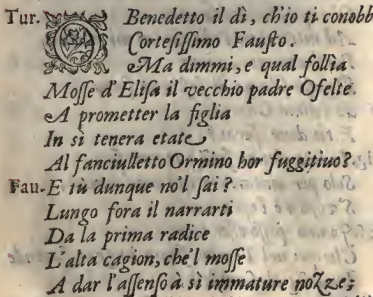 Tur. Benedetto il dì, ch'io ti conobb
Cortesissimo Fausto.
Ma dimmi, e qual follia
Mosse d'Elisa il vecchio padre Ofelte
A prometter la figlia
In sì tenera etate
Al fanciulletto Ormino hor fuggitiuo?
Fau. E tù dunque no'l sai?
Lungo fora il narrarti
Da la prima radice
L'alta cagion, che'l mosse
A dar l'assenso à sì immature nozze;